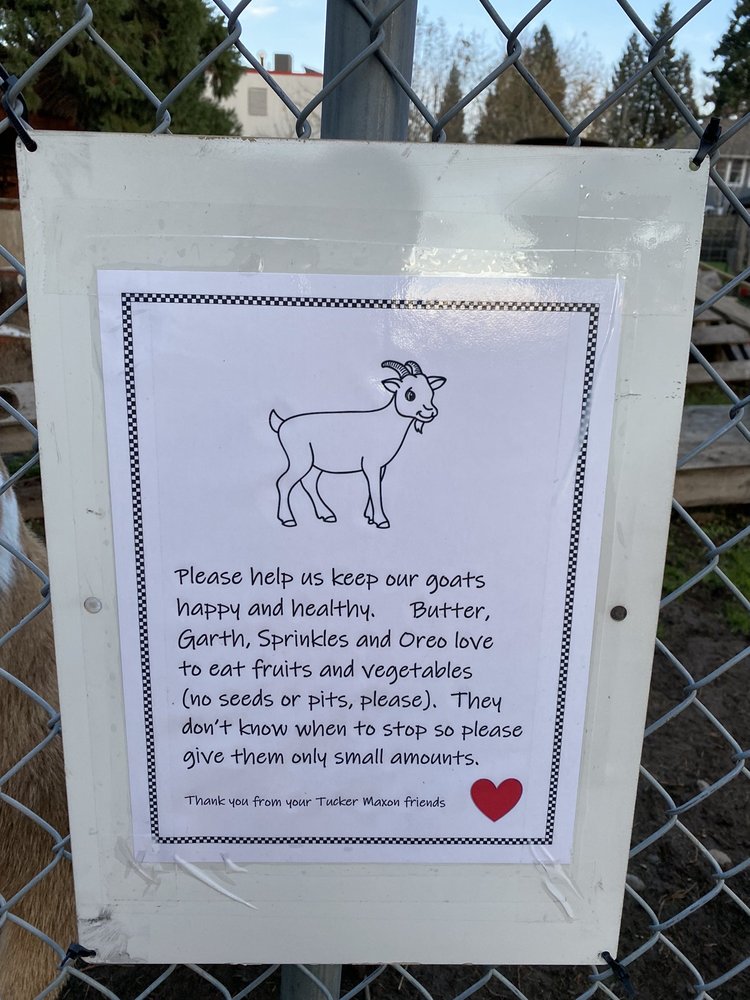 Please help us keep our goats
happy and healthy. Butter,
Garth, Sprinkles and Oreo love
to eat fruits and vegetables
(no seeds or pits, please). They
don't know when to stop so please
give them only small amounts.
Thank you from your Tucker Maxon friends